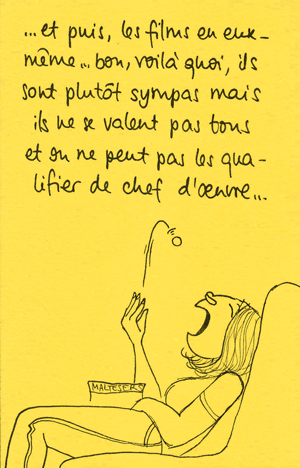 ...et puis, les films en eux-
même... bon, voilà quoi, ils
sont plutôt sympas mais
ils ne se valent pas tous
et on ne peut pas les qua-
lifier de chef d'œuvre...
MALTESERS